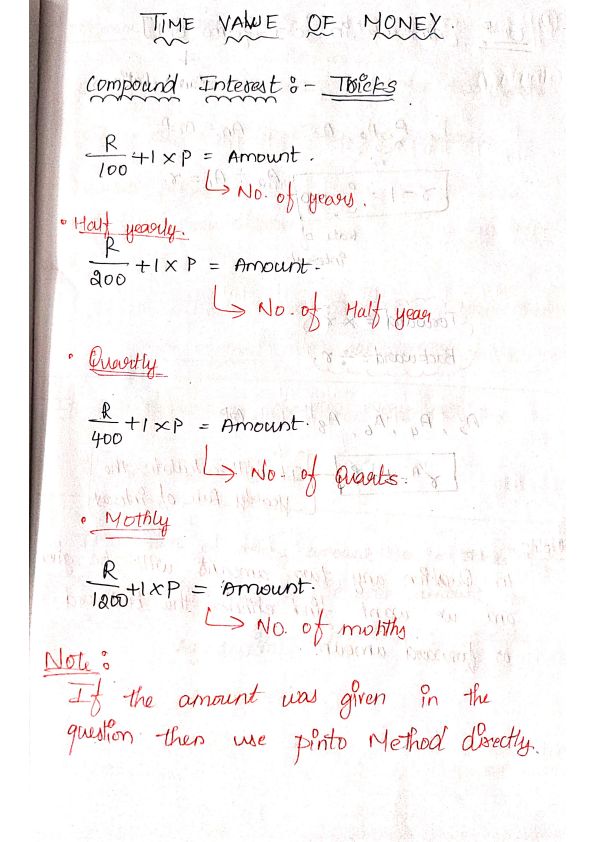 TIME VALUE OF MONEY.
Compound Interest :- Tricks
R/100 +1 × P = Amount.
↳ No. of years.
• Half yearly.
R/200 +1 × P = Amount.
↳ No. of Half year
• Quartly
R/400 +1 × P = Amount.
↳ No. of Quarts.
• Mothly
R/1200 +1 × P = Amount.
↳ No. of months.
Note :
If the amount was given in the
question then use pinto Method directly.